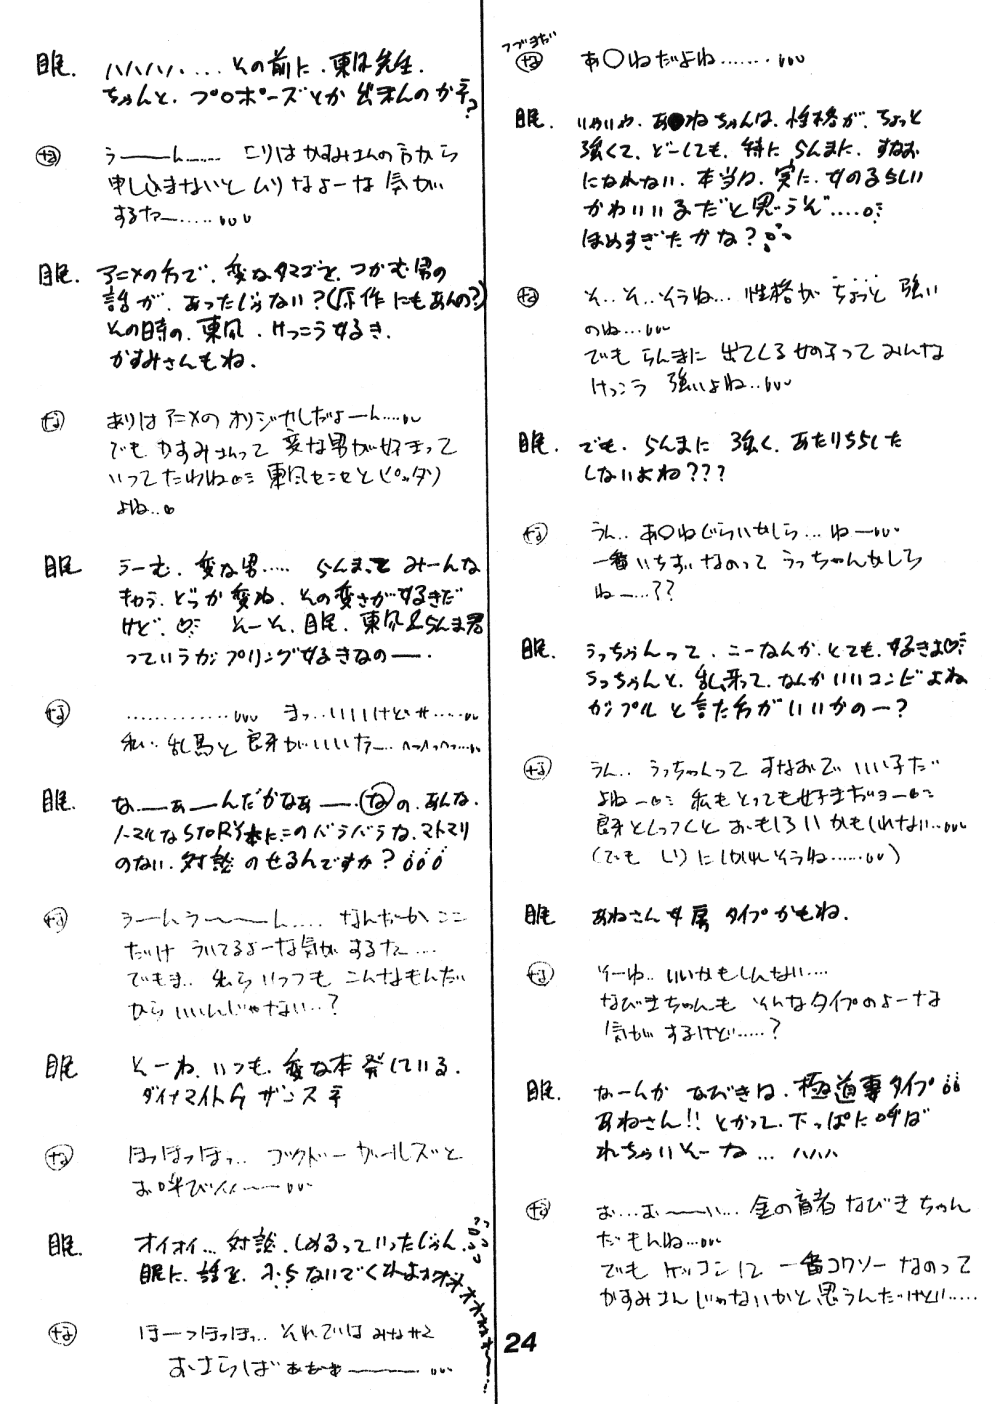 つづきだい
な あ〇ねだよね……‥い
眠. いやいや、あ●ねちゃんは、性格が、ちょっと
強くて、どーしても、特に らんまに、すなお
になれない、本当は、実に、女の子らしい
かわいい子だと思うぞ….
ほめすぎたかな?
な そ‥そ‥そうね… 性格が ちょっと 強い
のね…
でも らんまに 出てくる女の子って みんな
けっこう 強いよね‥
眠. でも、らんまに 強く、あたりちらした
しないよね???
な うん‥ あ〇ねぐらいかしら… ねー
一番いちずなのって うっちゃんかしら
ねー…??
眠. うっちゃんって、こーなんか、とても、好きよ♡
うっちゃんと、乱馬って、なんかいいコンビよね
カップルと言た方がいいかのー?
な うん‥ うっちゃんって すなおで いい子だ
よねー 私もとっても好きだヨー
良牙とくっつくと おもしろいかもしれない‥
(でも しりにしかれそうね……)
眠 あねさん女房 タイプかもね.
な そーゆ‥ いいかもしんない‥‥
なびきちゃんも そんなタイプのよーな
気がするけど……?
眠. なーんか なびきは、極道妻タイプ
あねさん!! とかって、下っぱに呼ば
れちゃいそーな … ハハハ
な お…お〜〜い… 金の亡者 なびきちゃん
だもんね…
でも ケッコンして 一番コワソーなのって
かすみさんじゃないかと思うんだけど……
眠. ハハハハ・・・ その前に、東風先生.
ちゃんと、プロポーズとか 出来んのか?
な う――ん…… こりは かすみさんの方から
申し込まないと ムリなよーな 気が
するなー……
眠. アニメの方で、変なタマゴを、つかむ男の
話が、あったじゃない?(原作にもあんの?)
その時の、東風、けっこう好き.
かすみさんもね.
な ありはアニメの オリジナルだよーん…
でも かすみさんって 変な男が好きって
いってたわね 東風センセとピッタリ
よね‥
眠 うーむ、変な男…… らんまって みーんな
きゃら、どっか変ね、その変さが好きだ
けど、♡ そーそ、眠、東風&らんま君
っていうカップリング好きなのー.
な …………… まっ‥いいけどサ……
私‥乱馬と 良牙がいいなー へへへへ…
眠. な―ぁーんだかなぁー. なの、あんな、
ノーマルなSTORY本に、このバラバラな、マトマリ
のない、対談 のせるんですか?
な うーんうー〜ん…. なんだか ここ
だけ ういてるよーな気が するなー…
でもま‥ 私ら いっつも こんなもんだ
から いいんじゃない‥?
眠 そーね、いつも、変な本 発している.
ダイナマイトG ザンス
な ほっほっほっ‥. ゴクドーガールズと
お呼びんん――
眠. オイオイ… 対談、しめるっていったじゃん.
眠に、話を、ふらないでくれよ
な ほーっほっほっ‥ それでは みなサマ
おさらばぁぁぁ――――
24